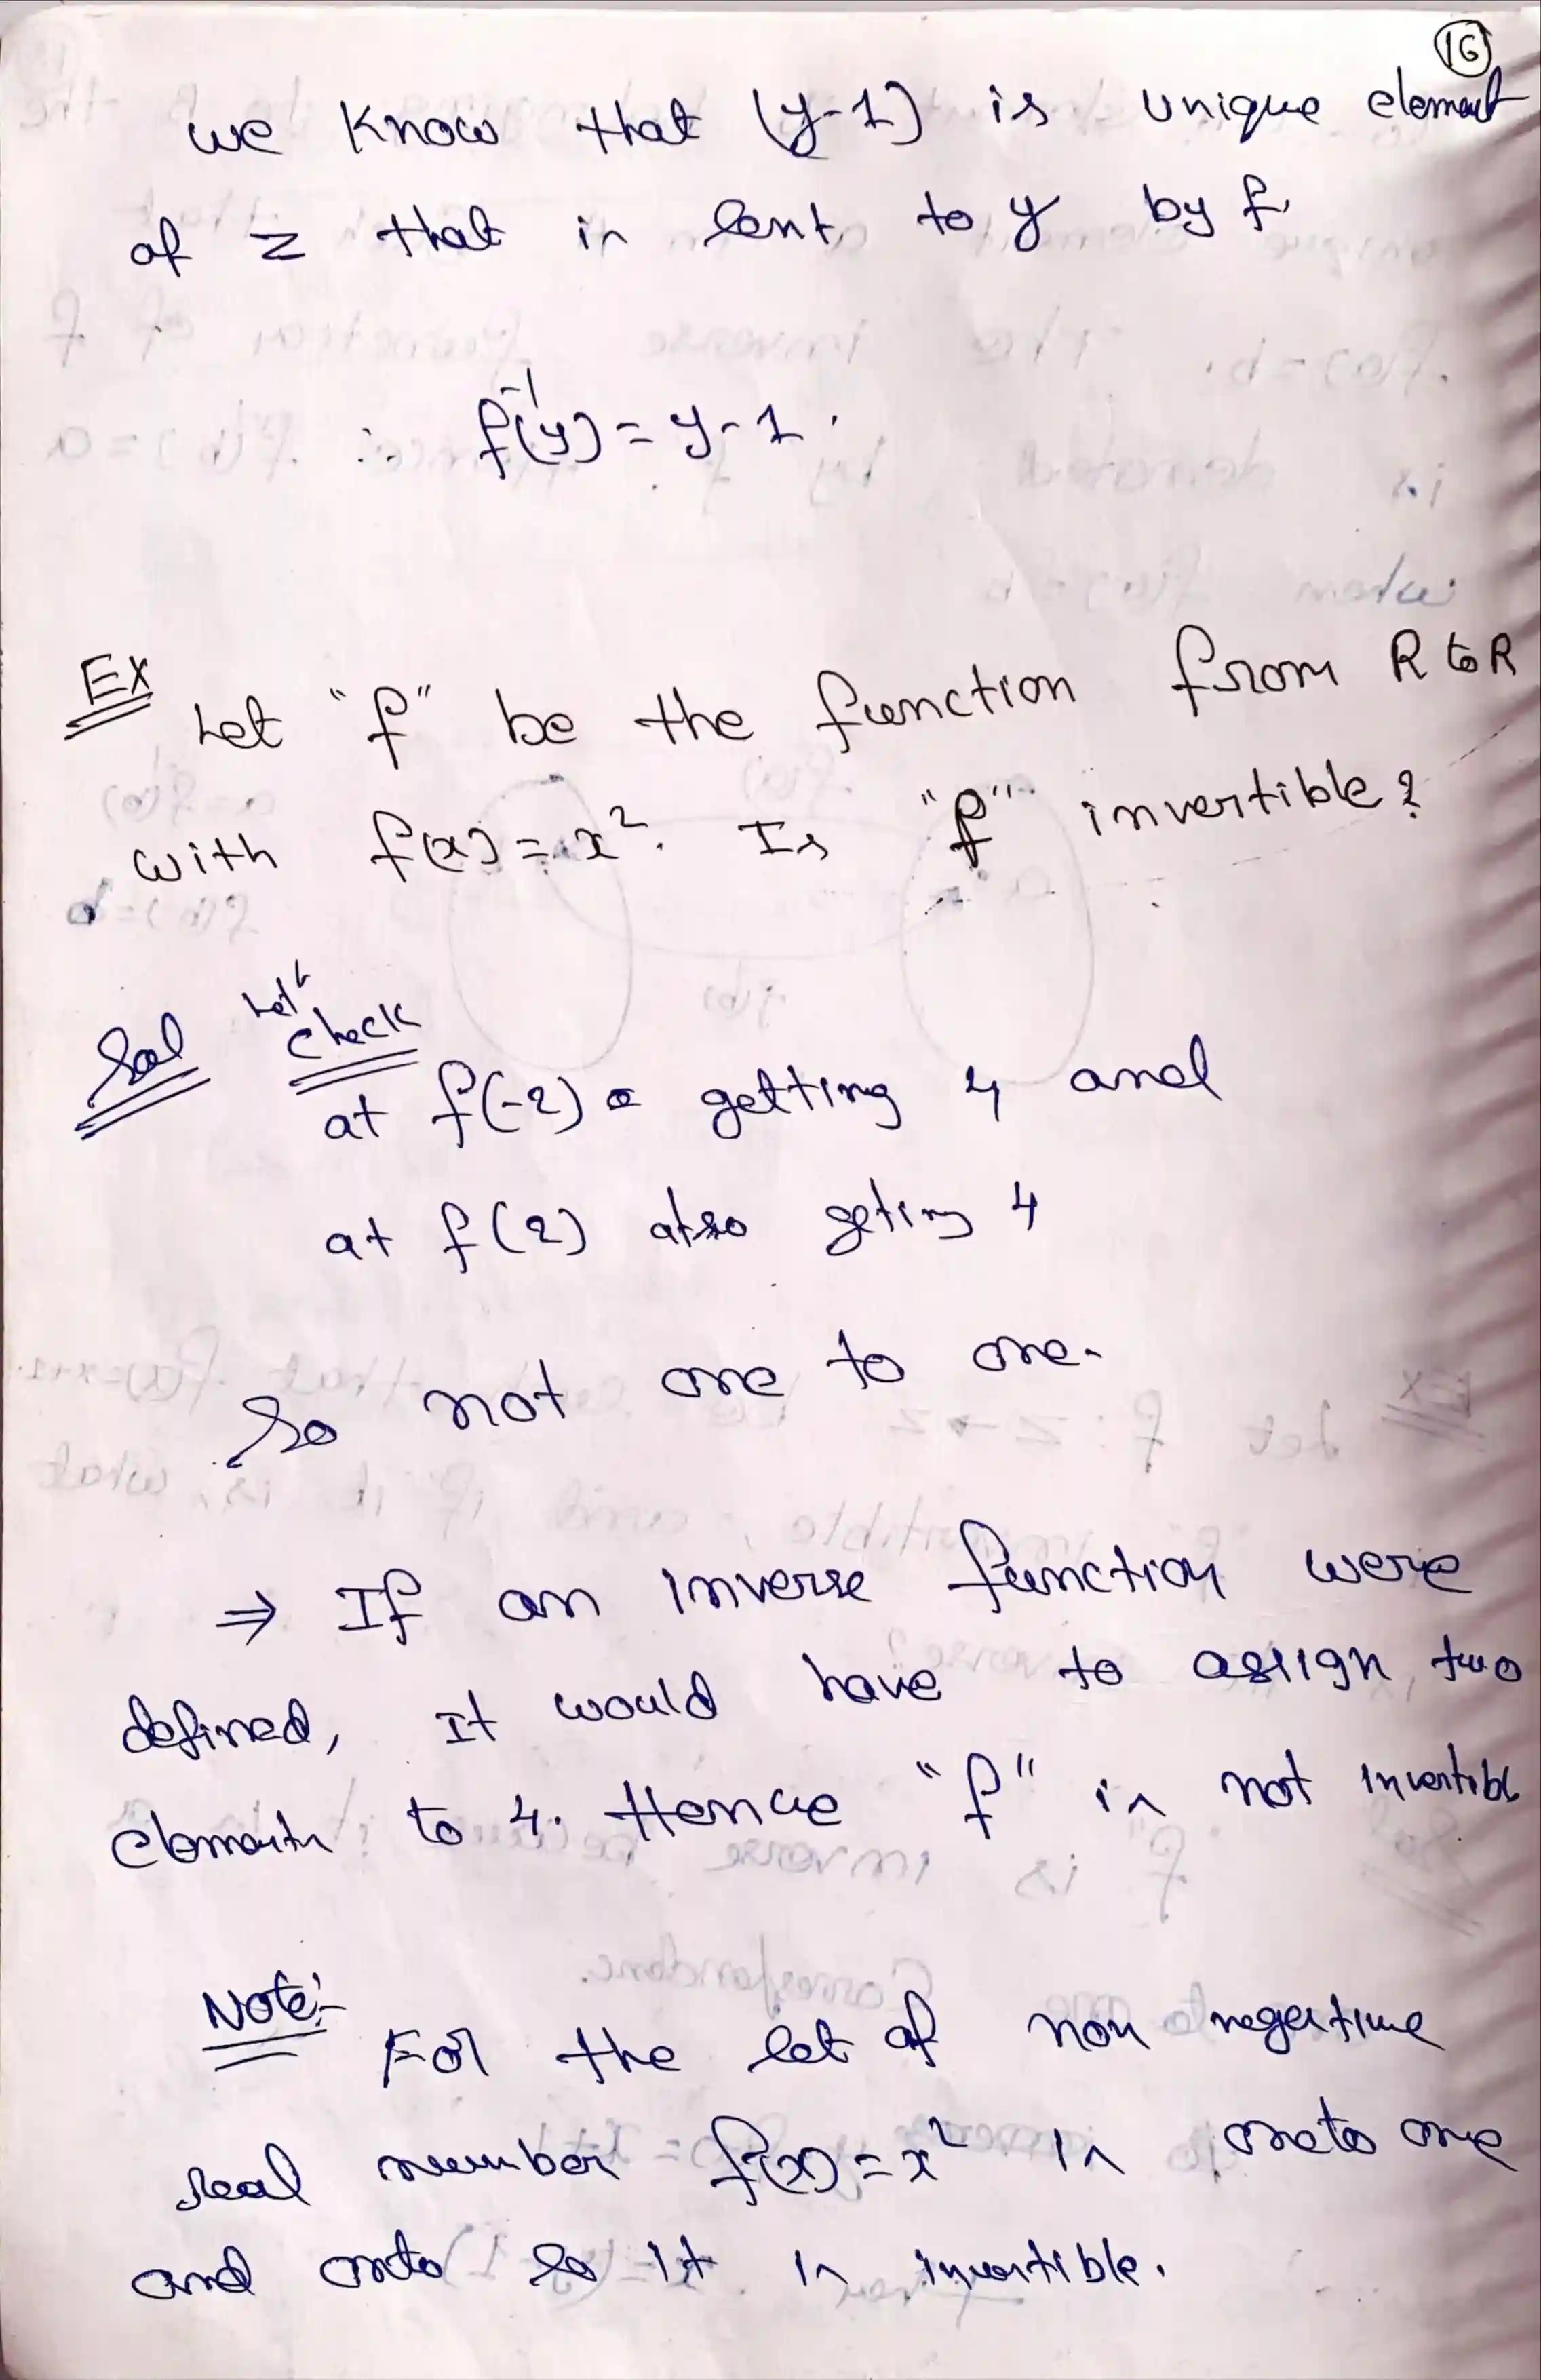 16
we know that (y-1) is unique element
of Z that is sent to y by f
∴ f⁻¹(y) = y-1.
Ex
Let "f" be the function from R to R
with f(x) = x². Is "f" invertible?
Sol Let's check
at f(-2) getting 4 and
at f(2) also geting 4
So not one to one.
⇒ If an inverse function were
defined, it would have to assign two
elements to 4. Hence "f" is not invertibl
Note:-
For the set of non negative
real number f(x) = x² is one to one
and onto so it is invertible.